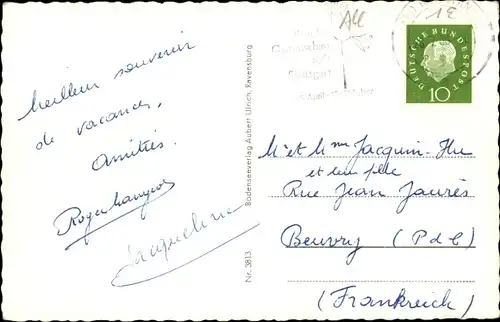 Meilleur souvenir
de vacances,
Amitiés.
Jacqueline
Nr. 3813
Bodenseeverlag Aubert Ulrich, Ravensburg
All
1E
Stuttgart
DEUTSCHE BUNDESPOST
10
M et Mme Jacquin-Hu
et leur fille
Rue Jean Jaurès
Beuvry (P d C)
(Frankreich)